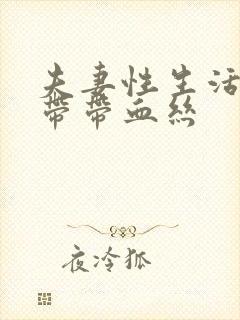 夫妻性生活
带带血丝
夜冷狐